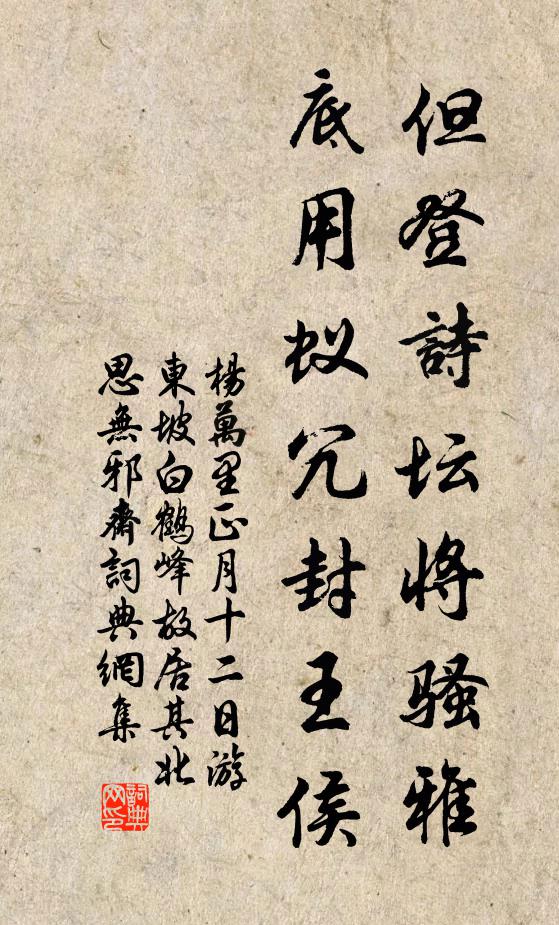 但登詩坛將骚雅
底用蚁冗封王侯
楊萬里正月十二日游
東坡白鶴峰故居其北
思無邪齋詞典網集
詞典网印